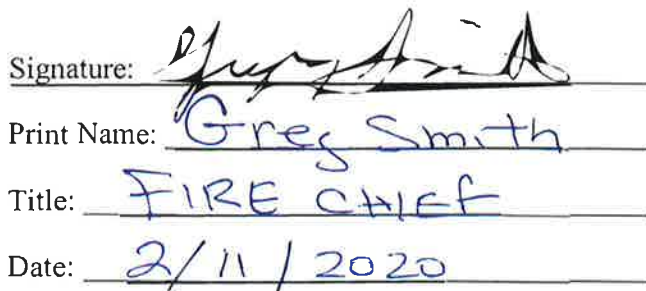 Signature: Greg Smith
Print Name: Greg Smith
Title: FIRE CHIEF
Date: 2/11/2020